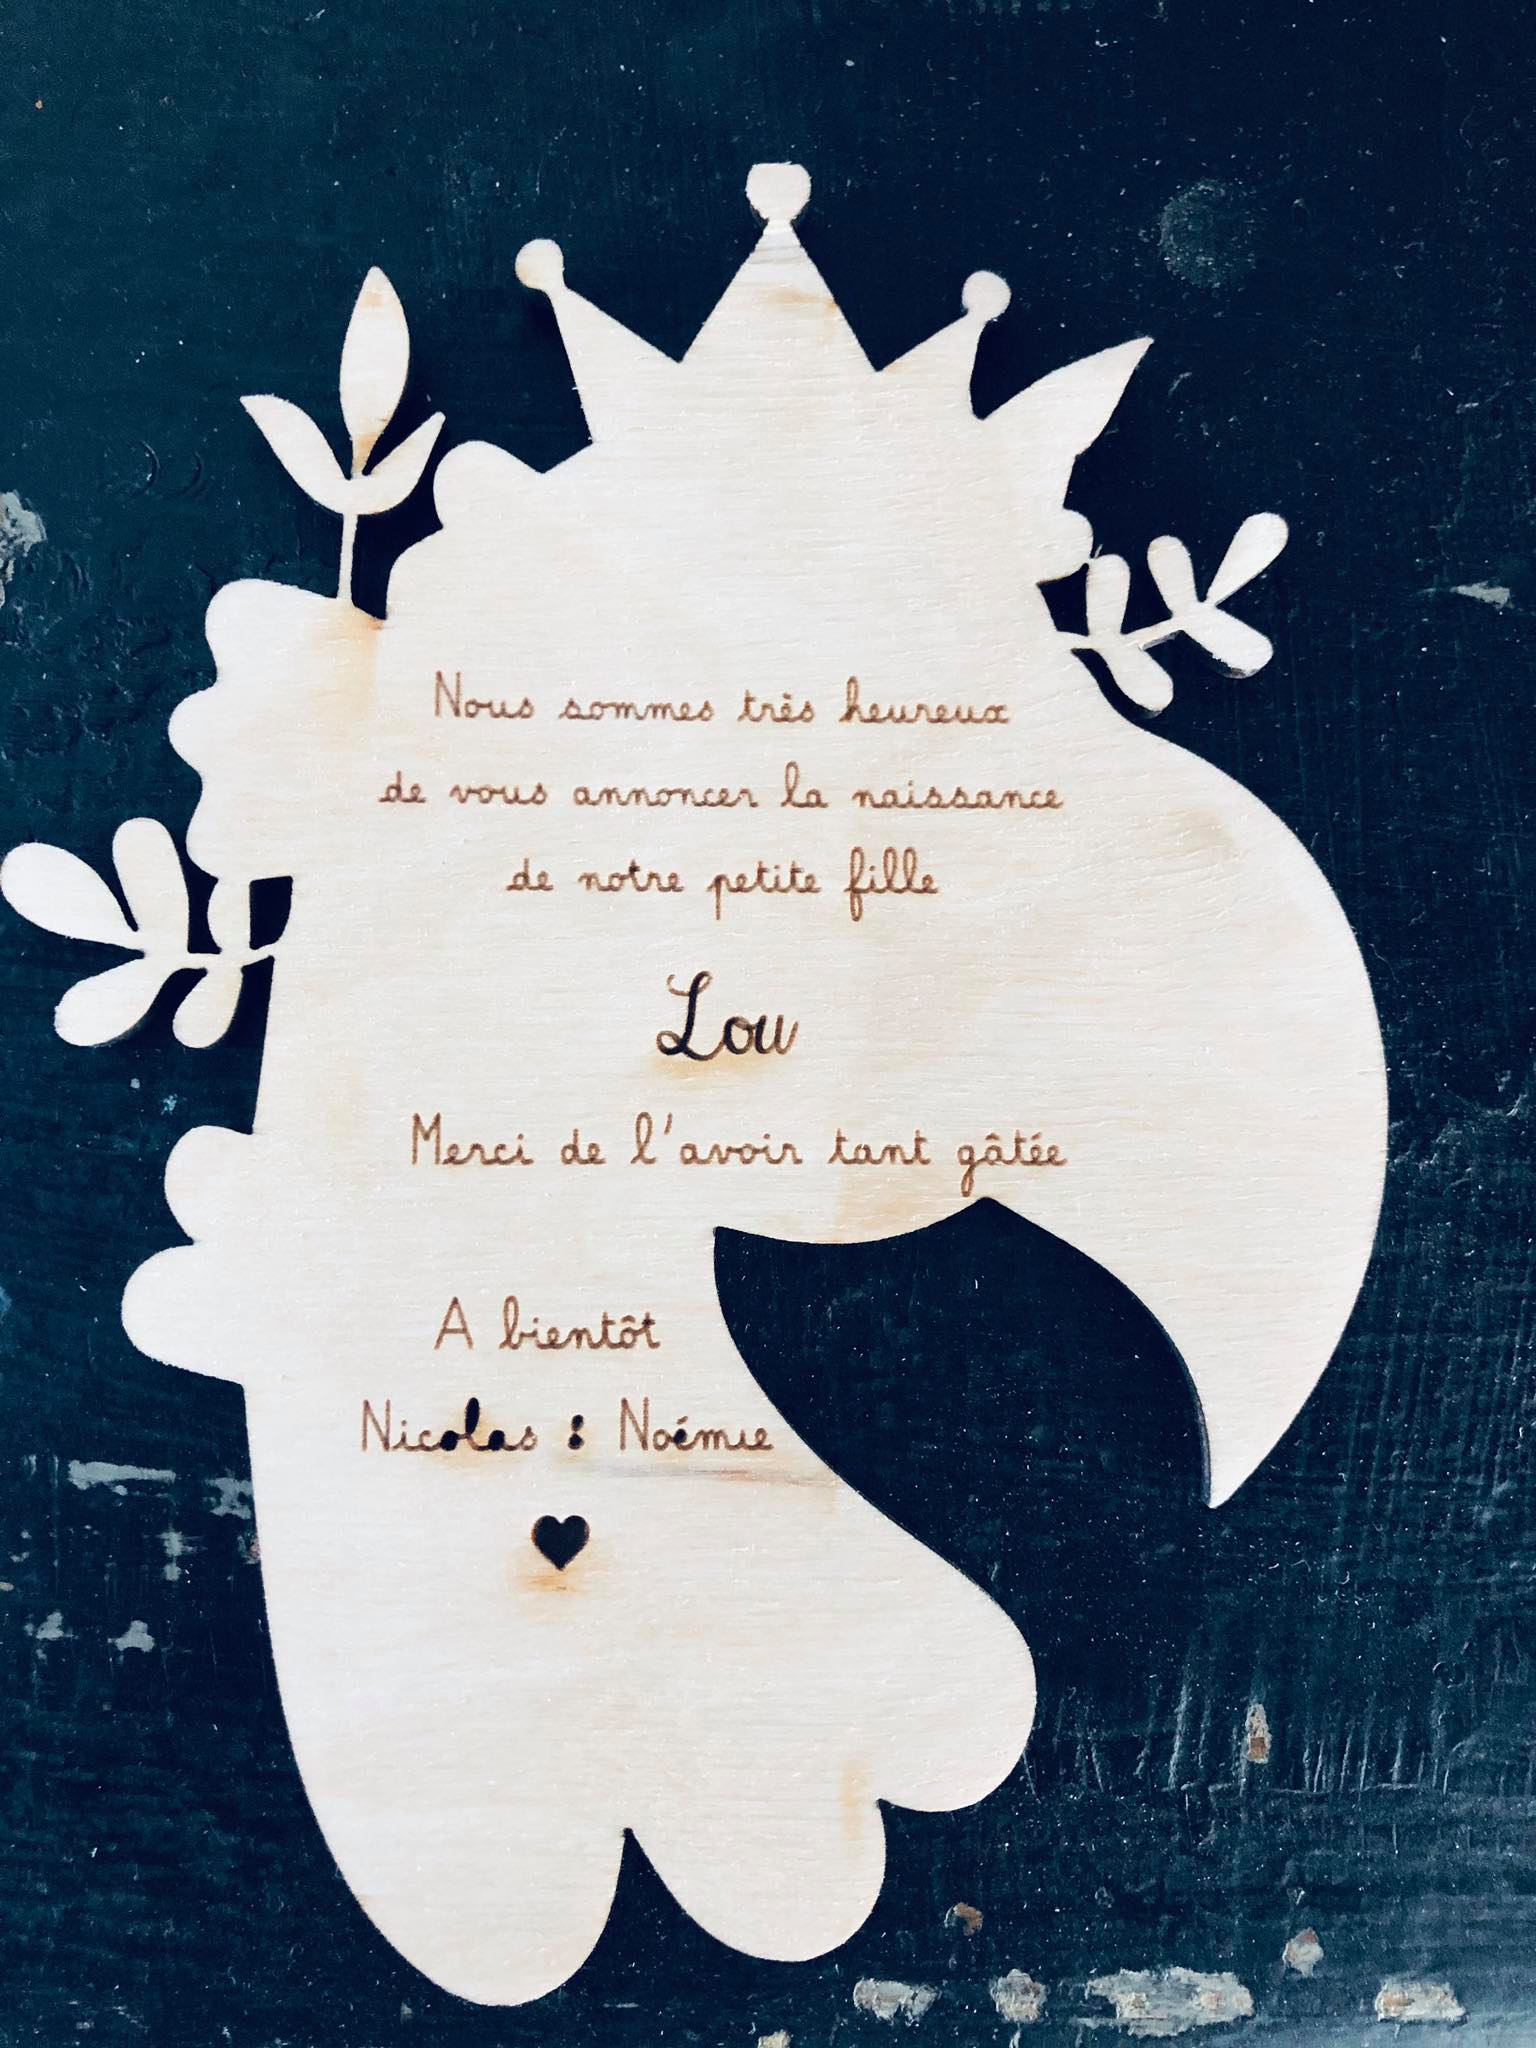 Nous sommes très heureux
de vous annoncer la naissance
de notre petite fille
Lou
Merci de l'avoir tant gâtée
A bientôt
Nicolas & Noémie